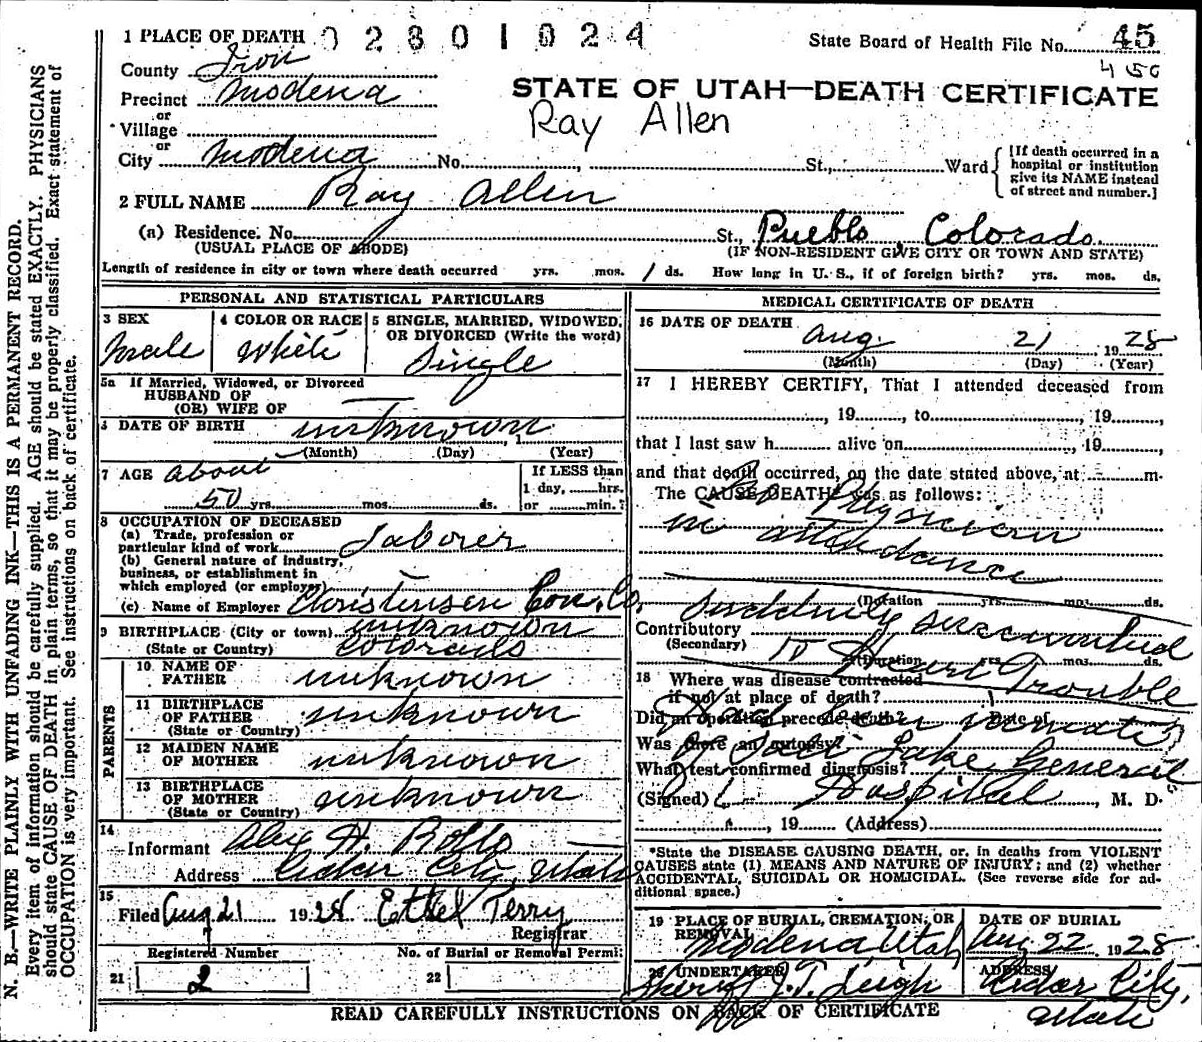 1 PLACE OF DEATH 02801024
State Board of Health File No. 45
450
County Iron
Precinct Modena
STATE OF UTAH—DEATH CERTIFICATE
or
Village
Ray Allen
or
City Modena No. , St., Ward
[If death occurred in a hospital or institution give its NAME instead of street and number.]
2 FULL NAME Ray Allen
(a) Residence. No. St., Pueblo, Colorado.
(USUAL PLACE OF ABODE) (IF NON-RESIDENT GIVE CITY OR TOWN AND STATE)
Length of residence in city or town where death occurred yrs. mos. 1 ds. How long in U. S., if of foreign birth? yrs. mos. ds.
PERSONAL AND STATISTICAL PARTICULARS
3 SEX
Male
4 COLOR OR RACE
White
5 SINGLE, MARRIED, WIDOWED, OR DIVORCED (Write the word)
Single
5a If Married, Widowed, or Divorced
HUSBAND OF
(OR) WIFE OF
6 DATE OF BIRTH unknown
(Month) (Day) (Year)
7 AGE about
50 yrs. mos. ds.
If LESS than
1 day, hrs.
or min.?
8 OCCUPATION OF DECEASED
(a) Trade, profession or
particular kind of work Laborer
(b) General nature of industry,
business, or establishment in
which employed (or employer)
(c) Name of Employer Christensen Con. Co.
9 BIRTHPLACE (City or town) unknown
(State or Country) Colorado
PARENTS
10 NAME OF
FATHER unknown
11 BIRTHPLACE
OF FATHER unknown
(State or Country)
12 MAIDEN NAME
OF MOTHER unknown
13 BIRTHPLACE
OF MOTHER unknown
(State or Country)
14
Informant Alex H. Rollo
Address Cedar City, Utah
15
Filed Aug 21 1928 Ethel Terry
Registrar
Registered Number No. of Burial or Removal Permit
21 2 22
MEDICAL CERTIFICATE OF DEATH
16 DATE OF DEATH
Aug. 21 1928
(Month) (Day) (Year)
17 I HEREBY CERTIFY, That I attended deceased from
, 19 , to , 19
that I last saw h alive on , 19
and that death occurred, on the date stated above, at m.
The CAUSE OF DEATH* was as follows:
No Physician
in attendance
(Duration yrs. mos. ds.
Suddenly succumbed
Contributory
(Secondary)
to Heart Trouble
(Duration yrs. mos. ds.
18 Where was disease contracted
if not at place of death?
Had been inmate
Did an operation precede death? Date of
Was there an autopsy?
of Salt Lake General
What test confirmed diagnosis?
Hospital
(Signed) , M. D.
, 19 (Address)
*State the DISEASE CAUSING DEATH, or, in deaths from VIOLENT
CAUSES state (1) MEANS AND NATURE OF INJURY; and (2) whether
ACCIDENTAL, SUICIDAL OR HOMICIDAL. (See reverse side for ad-
ditional space.)
19 PLACE OF BURIAL, CREMATION, OR
REMOVAL
Modena, Utah
DATE OF BURIAL
Aug 22, 1928
20 UNDERTAKER
Sheriff J. T. Leigh
ADDRESS
Cedar City,
Utah
READ CAREFULLY INSTRUCTIONS ON BACK OF CERTIFICATE
N. B.—WRITE PLAINLY WITH UNFADING INK—THIS IS A PERMANENT RECORD.
Every item of information should be carefully supplied. AGE should be stated EXACTLY. PHYSICIANS
should state CAUSE OF DEATH in plain terms, so that it may be properly classified. Exact statement of
OCCUPATION is very important. See Instructions on back of certificate.